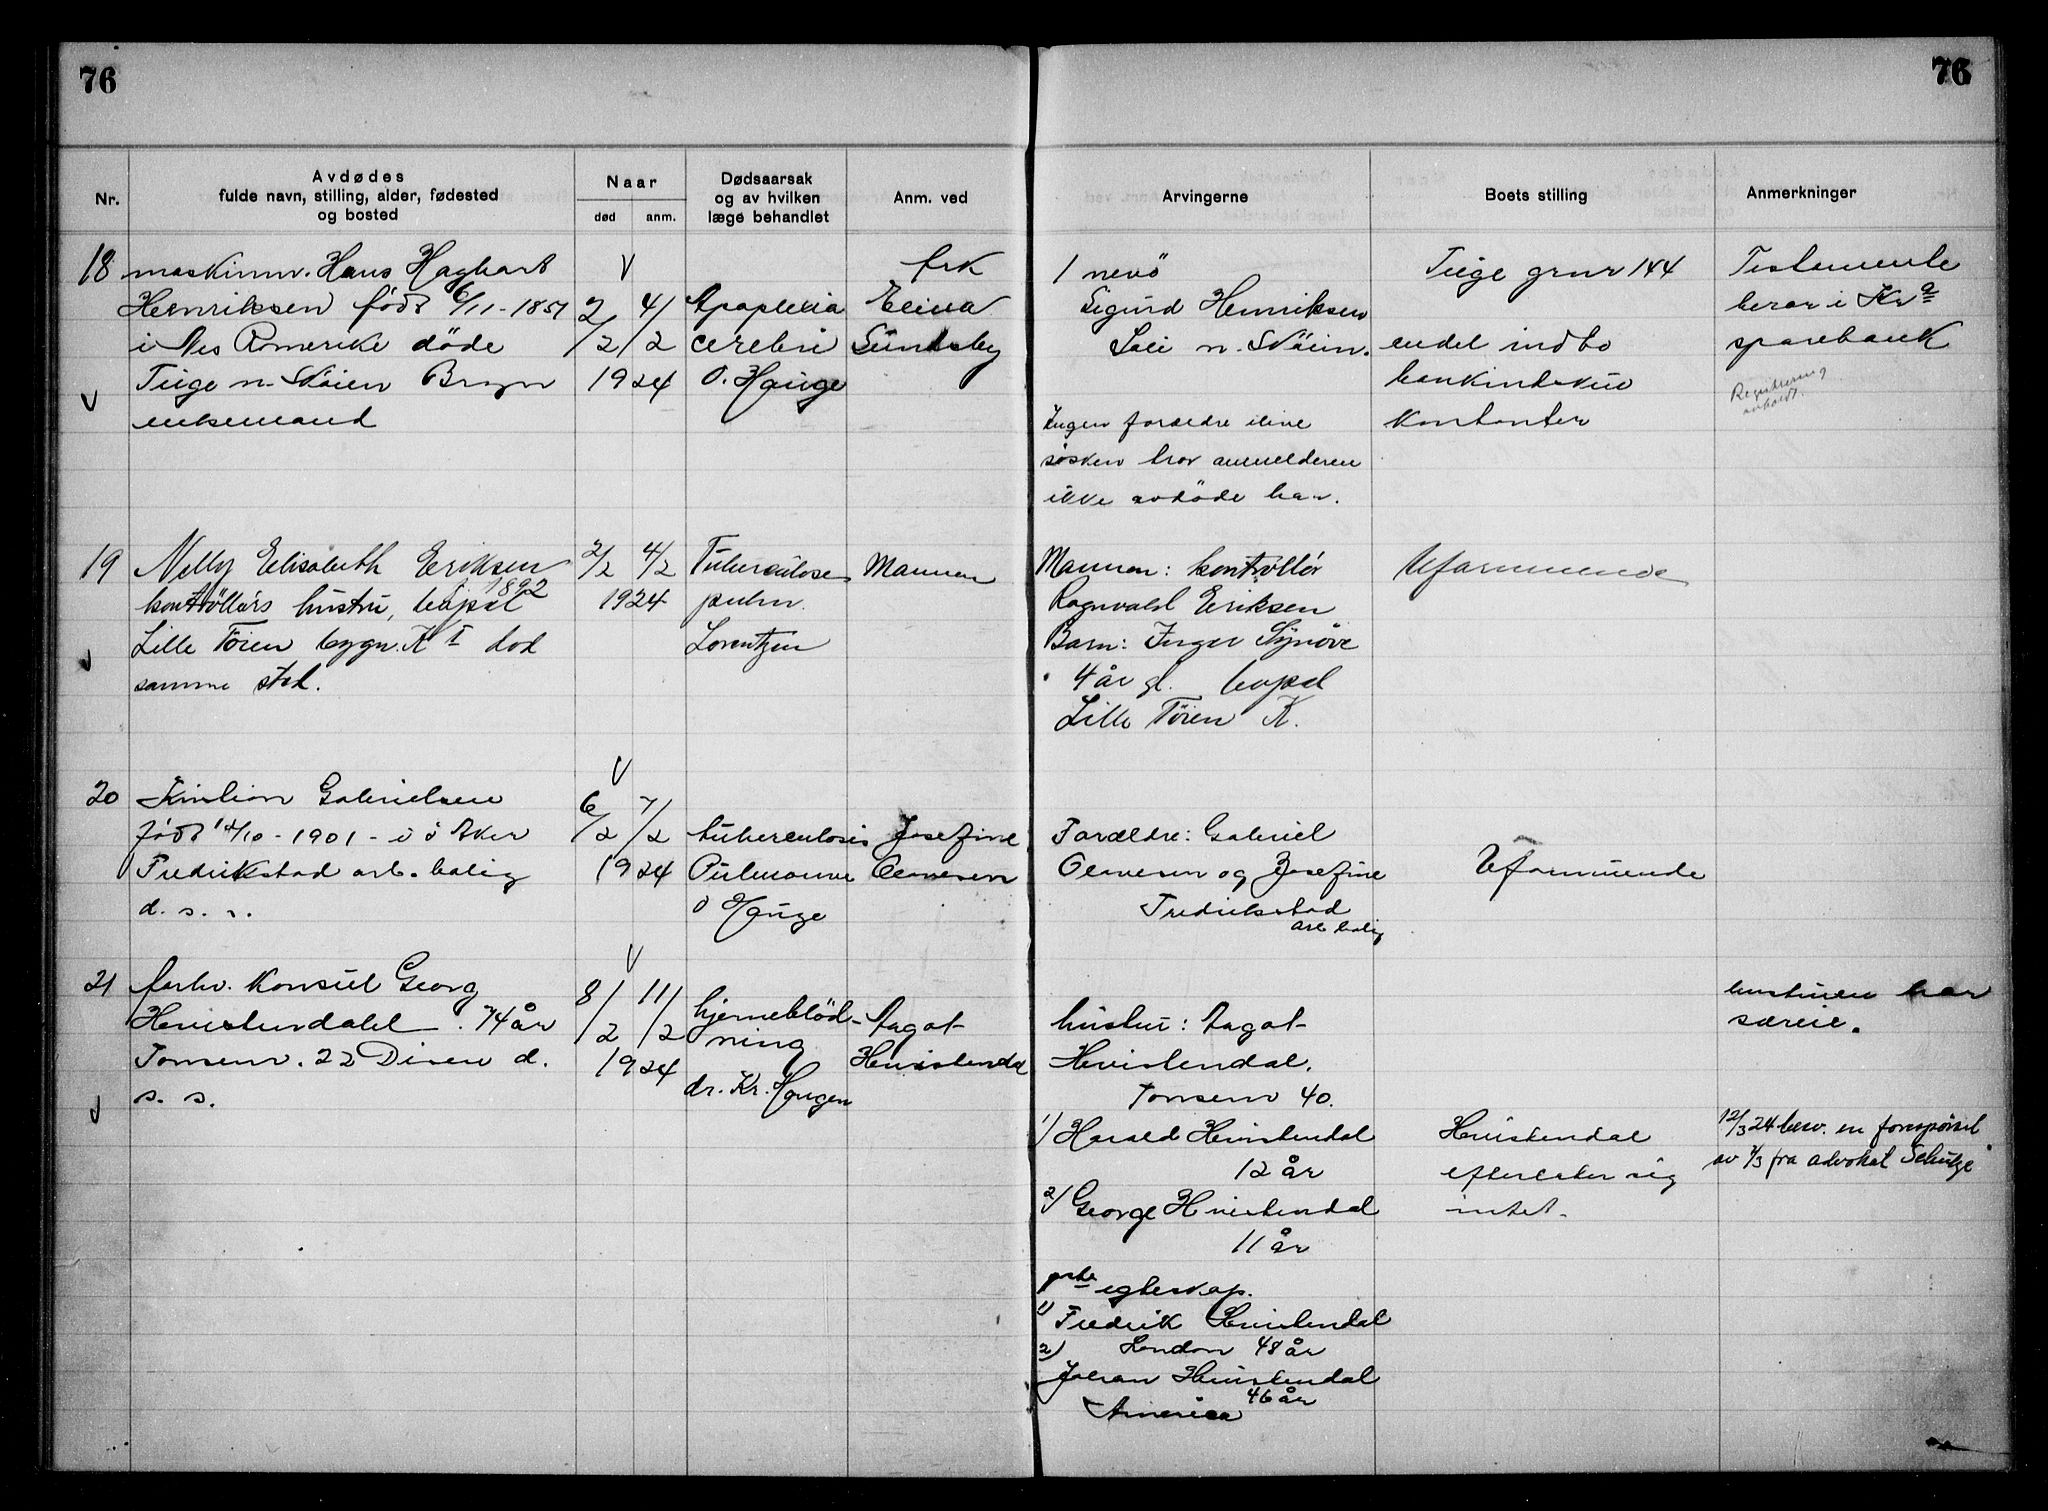 76
76
Nr.
Avdødes
fulde navn, stilling, alder, fødested
og bosted
Naar
død
anm.
Dødsaarsak
og av hvilken
læge behandlet
Anm. ved
Arvingerne
Boets stilling
Anmerkninger
18
maskinm. Hans Hagbart
Henriksen født 6/11-1851
i Nes Romerike døde
n. Skøien Bryn
enkemand
2/2 4/2
1924
Apoplexia
cerebri
O. Hauge
frk
Sundsby
1 nevø
Sigurd Henriksen
n. Skøien.
Ingen forældre eine
søsken tror anmelderen
ikke avdøde har.
grnr 144
endel indbo
bankindskud
kontanter
Testamente
beror i Kra
sparebank
Registrering
avholdt.
19
Nelly Elisabeth Eriksen
1892
kontrollørs hustru, bopæl
Lille Tøien bygn. K I død
samme sted.
2/2 4/2
1924
Tuberculose
pulm.
Lorentzen
Mannen
Mannen: kontrollør
Ragnvald Eriksen
Barn: Inger Synøve
4 år gl. bopæl
Lille Tøien K.
Uformuende
20
Gabrielsen
født 14/10-1901-i ø Aker
Fredrikstad arb. bolig
d. s. s.
6/2 7/2
1924
tuberculosis
Pulmonum
O Hauge
Josefine
Olavesen
Forældre: Gabriel
Olavesen og Josefine
Fredrikstad
arb bolig
Uformuende
21
forhv. Konsul Georg
Hvistendahl. 74 år
Tonsenv. 22 Disen d.
s. s.
8/2 11/2
1924
hjerneblød-
ning
dr. Kr. Haugen
Aagot
Hvistendal
hustru: Aagot
Hvistendal.
Tonsenv 40.
1/ Harald Hvistendal
12 år
2/ George Hvistendal
11 år
1ste egteskap.
1) Fredrik Hvistendal
London 48 år
2)
Johan Hvistendal
46 år
America
Hvistendal
efterlater sig
intet.
hustruen har
særeie.
12/3 24 besv. en forespørsel
av 7/3 fra advokat Schulze